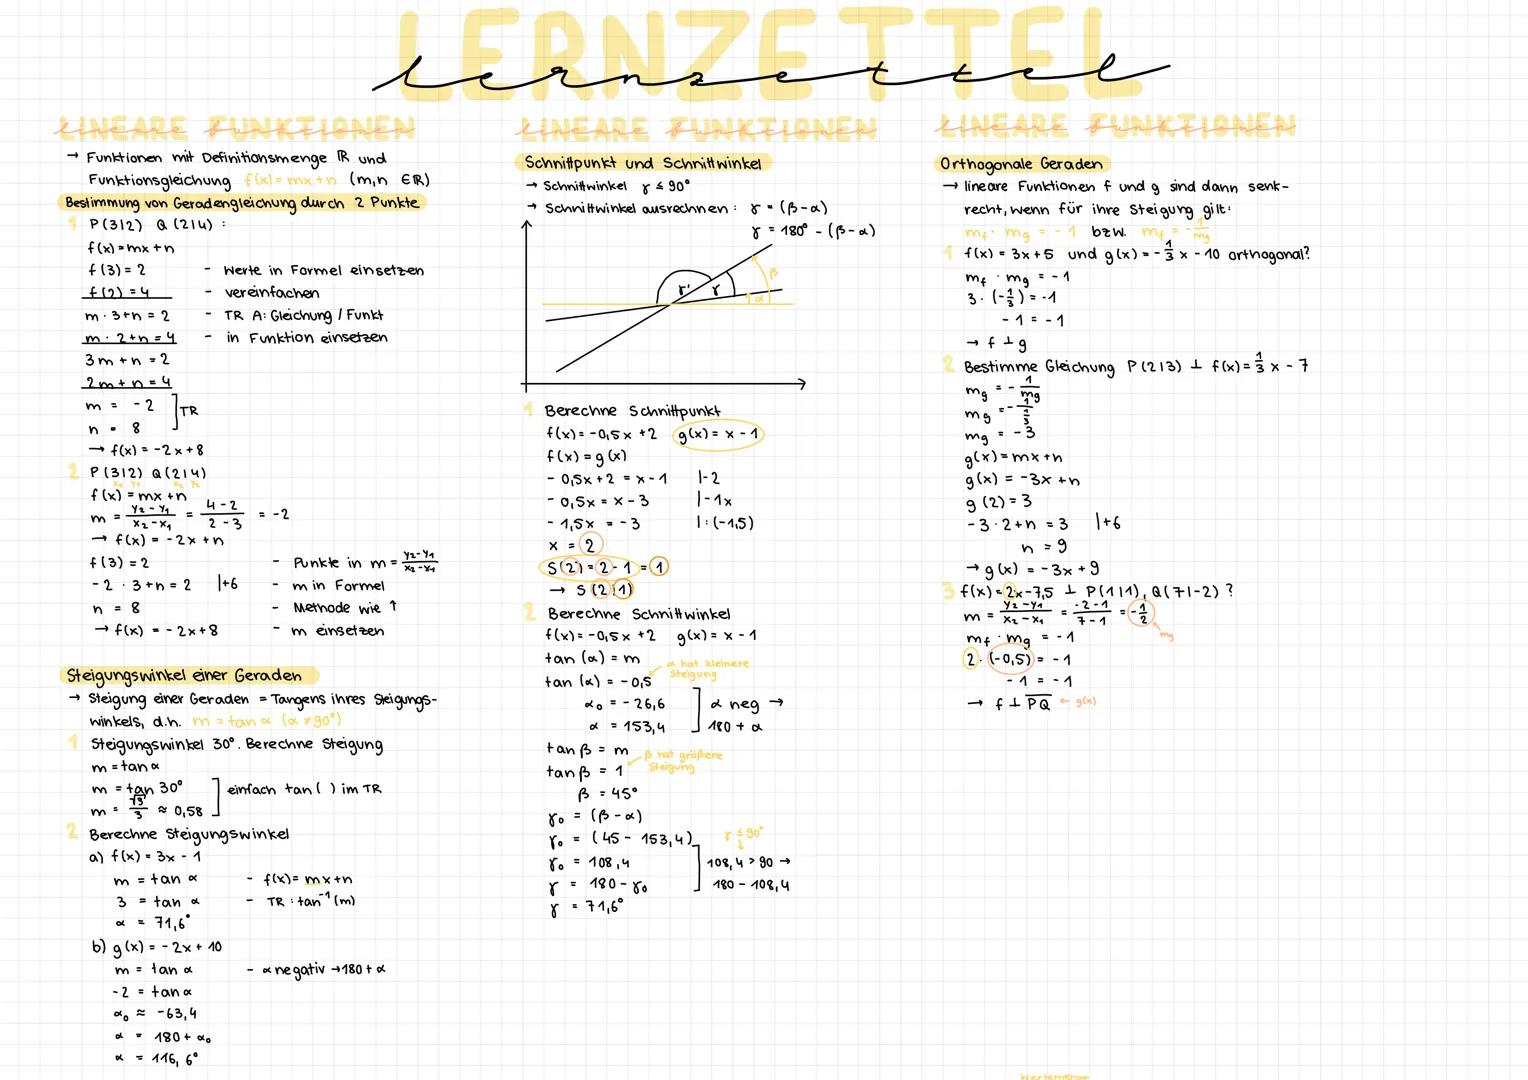 LERNZETTEL
lernzettel
LINEARE FUNKTIONEN
→ Funktionen mit Definitionsmenge ℝ und
Funktionsgleichung f(x) = mx+n (m,n ∈ ℝ)
Bestimmung von Geradengleichung durch 2 Punkte
1 P(3|2) Q(2|4) :
f(x) = mx+n
f(3) = 2 - Werte in Formel einsetzen
f(2) = 4 - vereinfachen
m · 3+n = 2 - TR A: Gleichung / Funkt
m · 2+n = 4 - in Funktion einsetzen
3m + n = 2
2m + n = 4
m = -2 ] TR
n = 8
→ f(x) = -2x+8
2 P(3|2) Q(2|4)
x₁ y₁ x₂ y₂
f(x) = mx+n
m = (y₂-y₁)/(x₂-x₁) = (4-2)/(2-3) = -2
→ f(x) = -2x+n
f(3) = 2 - Punkte in m = (y₂-y₁)/(x₂-x₁)
-2 · 3+n = 2 |+6 - m in Formel
n = 8 - Methode wie ↑
→ f(x) = -2x+8 - m einsetzen
Steigungswinkel einer Geraden
→ Steigung einer Geraden = Tangens ihres Steigungs-
winkels, d.h. m = tan α (α ≠ 90°)
1 Steigungswinkel 30°. Berechne Steigung
m = tan α
m = tan 30° ] einfach tan( ) im TR
m = √3/3 ≈ 0,58
2 Berechne Steigungswinkel
a) f(x) = 3x - 1
m = tan α - f(x) = mx+n
3 = tan α - TR : tan⁻¹(m)
α = 71,6°
b) g(x) = -2x + 10
m = tan α - α negativ → 180 + α
-2 = tan α
α₀ ≈ -63,4
α = 180 + α₀
α = 116,6°
LINEARE FUNKTIONEN
Schnittpunkt und Schnittwinkel
→ Schnittwinkel γ ≤ 90°
→ Schnittwinkel ausrechnen : γ = (β-α)
γ = 180° - (β-α)
β
γ' γ
α
1 Berechne Schnittpunkt
f(x) = -0,5x +2 g(x) = x - 1
f(x) = g(x)
-0,5x + 2 = x - 1 |-2
-0,5x = x - 3 |-1x
-1,5x = -3 |:(-1,5)
x = 2
S(2) = 2 - 1 = 1
→ S(2|1)
2 Berechne Schnittwinkel
f(x) = -0,5x +2 g(x) = x - 1
tan (α) = m
α hat kleinere
Steigung
tan (α) = -0,5
α₀ = -26,6 ] α neg →
α = 153,4 180 + α
tan β = m
β hat größere
Steigung
tan β = 1
β = 45°
γ₀ = (β-α)
γ₀ = (45 - 153,4) γ ≤ 90°
↓
γ₀ = 108,4 ] 108,4 > 90 →
γ = 180 - γ₀ 180 - 108,4
γ = 71,6°
LINEARE FUNKTIONEN
Orthogonale Geraden
→ lineare Funktionen f und g sind dann senk-
recht, wenn für ihre Steigung gilt:
m_f · m_g = -1 bzw. m_f = -1/m_g
1 f(x) = 3x+5 und g(x) = -1/3 x - 10 orthogonal?
m_f · m_g = -1
3 · (-1/3) = -1
-1 = -1
→ f ⊥ g
2 Bestimme Gleichung P(2|3) ⊥ f(x) = 1/3 x - 7
m_g = -1/m_g
m_g = -1/(1/3)
m_g = -3
g(x) = mx+n
g(x) = -3x+n
g(2) = 3
-3 · 2+n = 3 |+6
n = 9
→ g(x) = -3x + 9
3 f(x) = 2x-7,5 ⊥ P(1|1), Q(7|-2) ?
m = (y₂-y₁)/(x₂-x₁) = (-2-1)/(7-1) = -1/2
m_g
m_f · m_g = -1
2 · (-0,5) = -1
-1 = -1
→ f ⊥ PQ ← g(x)